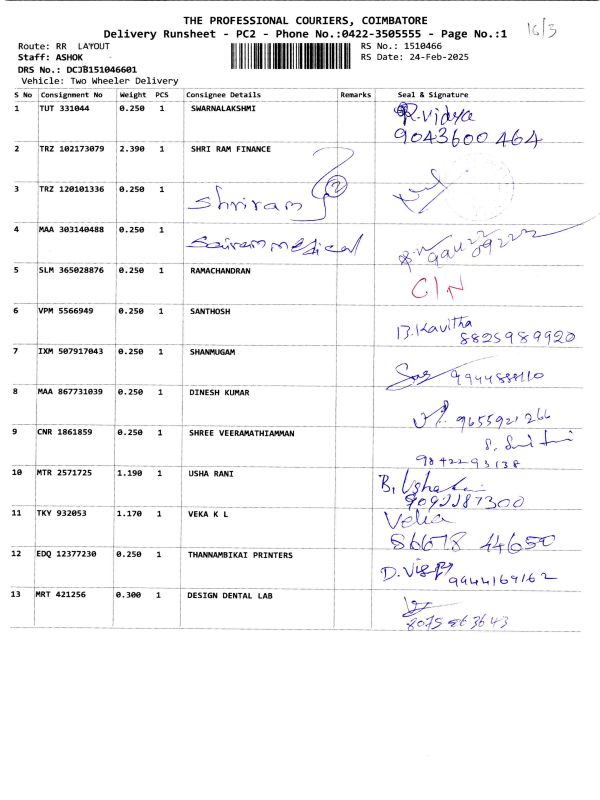 THE PROFESSIONAL COURIERS, COIMBATORE
Delivery Runsheet - PC2 - Phone No.:0422-3505555 - Page No.:1
16/3
Route: RR LAYOUT RS No.: 1510466
Staff: ASHOK RS Date: 24-Feb-2025
DRS No.: DCJB151046601
Vehicle: Two Wheeler Delivery
S No Consignment No Weight PCS Consignee Details Remarks Seal & Signature
1 TUT 331044 0.250 1 SWARNALAKSHMI R.Vidya
9043600464
2 TRZ 102173079 2.390 1 SHRI RAM FINANCE
3 TRZ 120101336 0.250 1 Shriram 2
4 MAA 303140488 0.250 1 Sairam medical
5 SLM 365028876 0.250 1 RAMACHANDRAN C/N
6 VPM 5566949 0.250 1 SANTHOSH B.Kavitha
8825989920
7 IXM 507917043 0.250 1 SHANMUGAM
8 MAA 867731039 0.250 1 DINESH KUMAR 9655921266
9 CNR 1861859 0.250 1 SHREE VEERAMATHIAMMAN
9842293138
10 MTR 2571725 1.190 1 USHA RANI B. Usha
11 TKY 932053 1.170 1 VEKA K L Veka
86678 44650
12 EDQ 12377230 0.250 1 THANNAMBIKAI PRINTERS
9944169162
13 MRT 421256 0.300 1 DESIGN DENTAL LAB